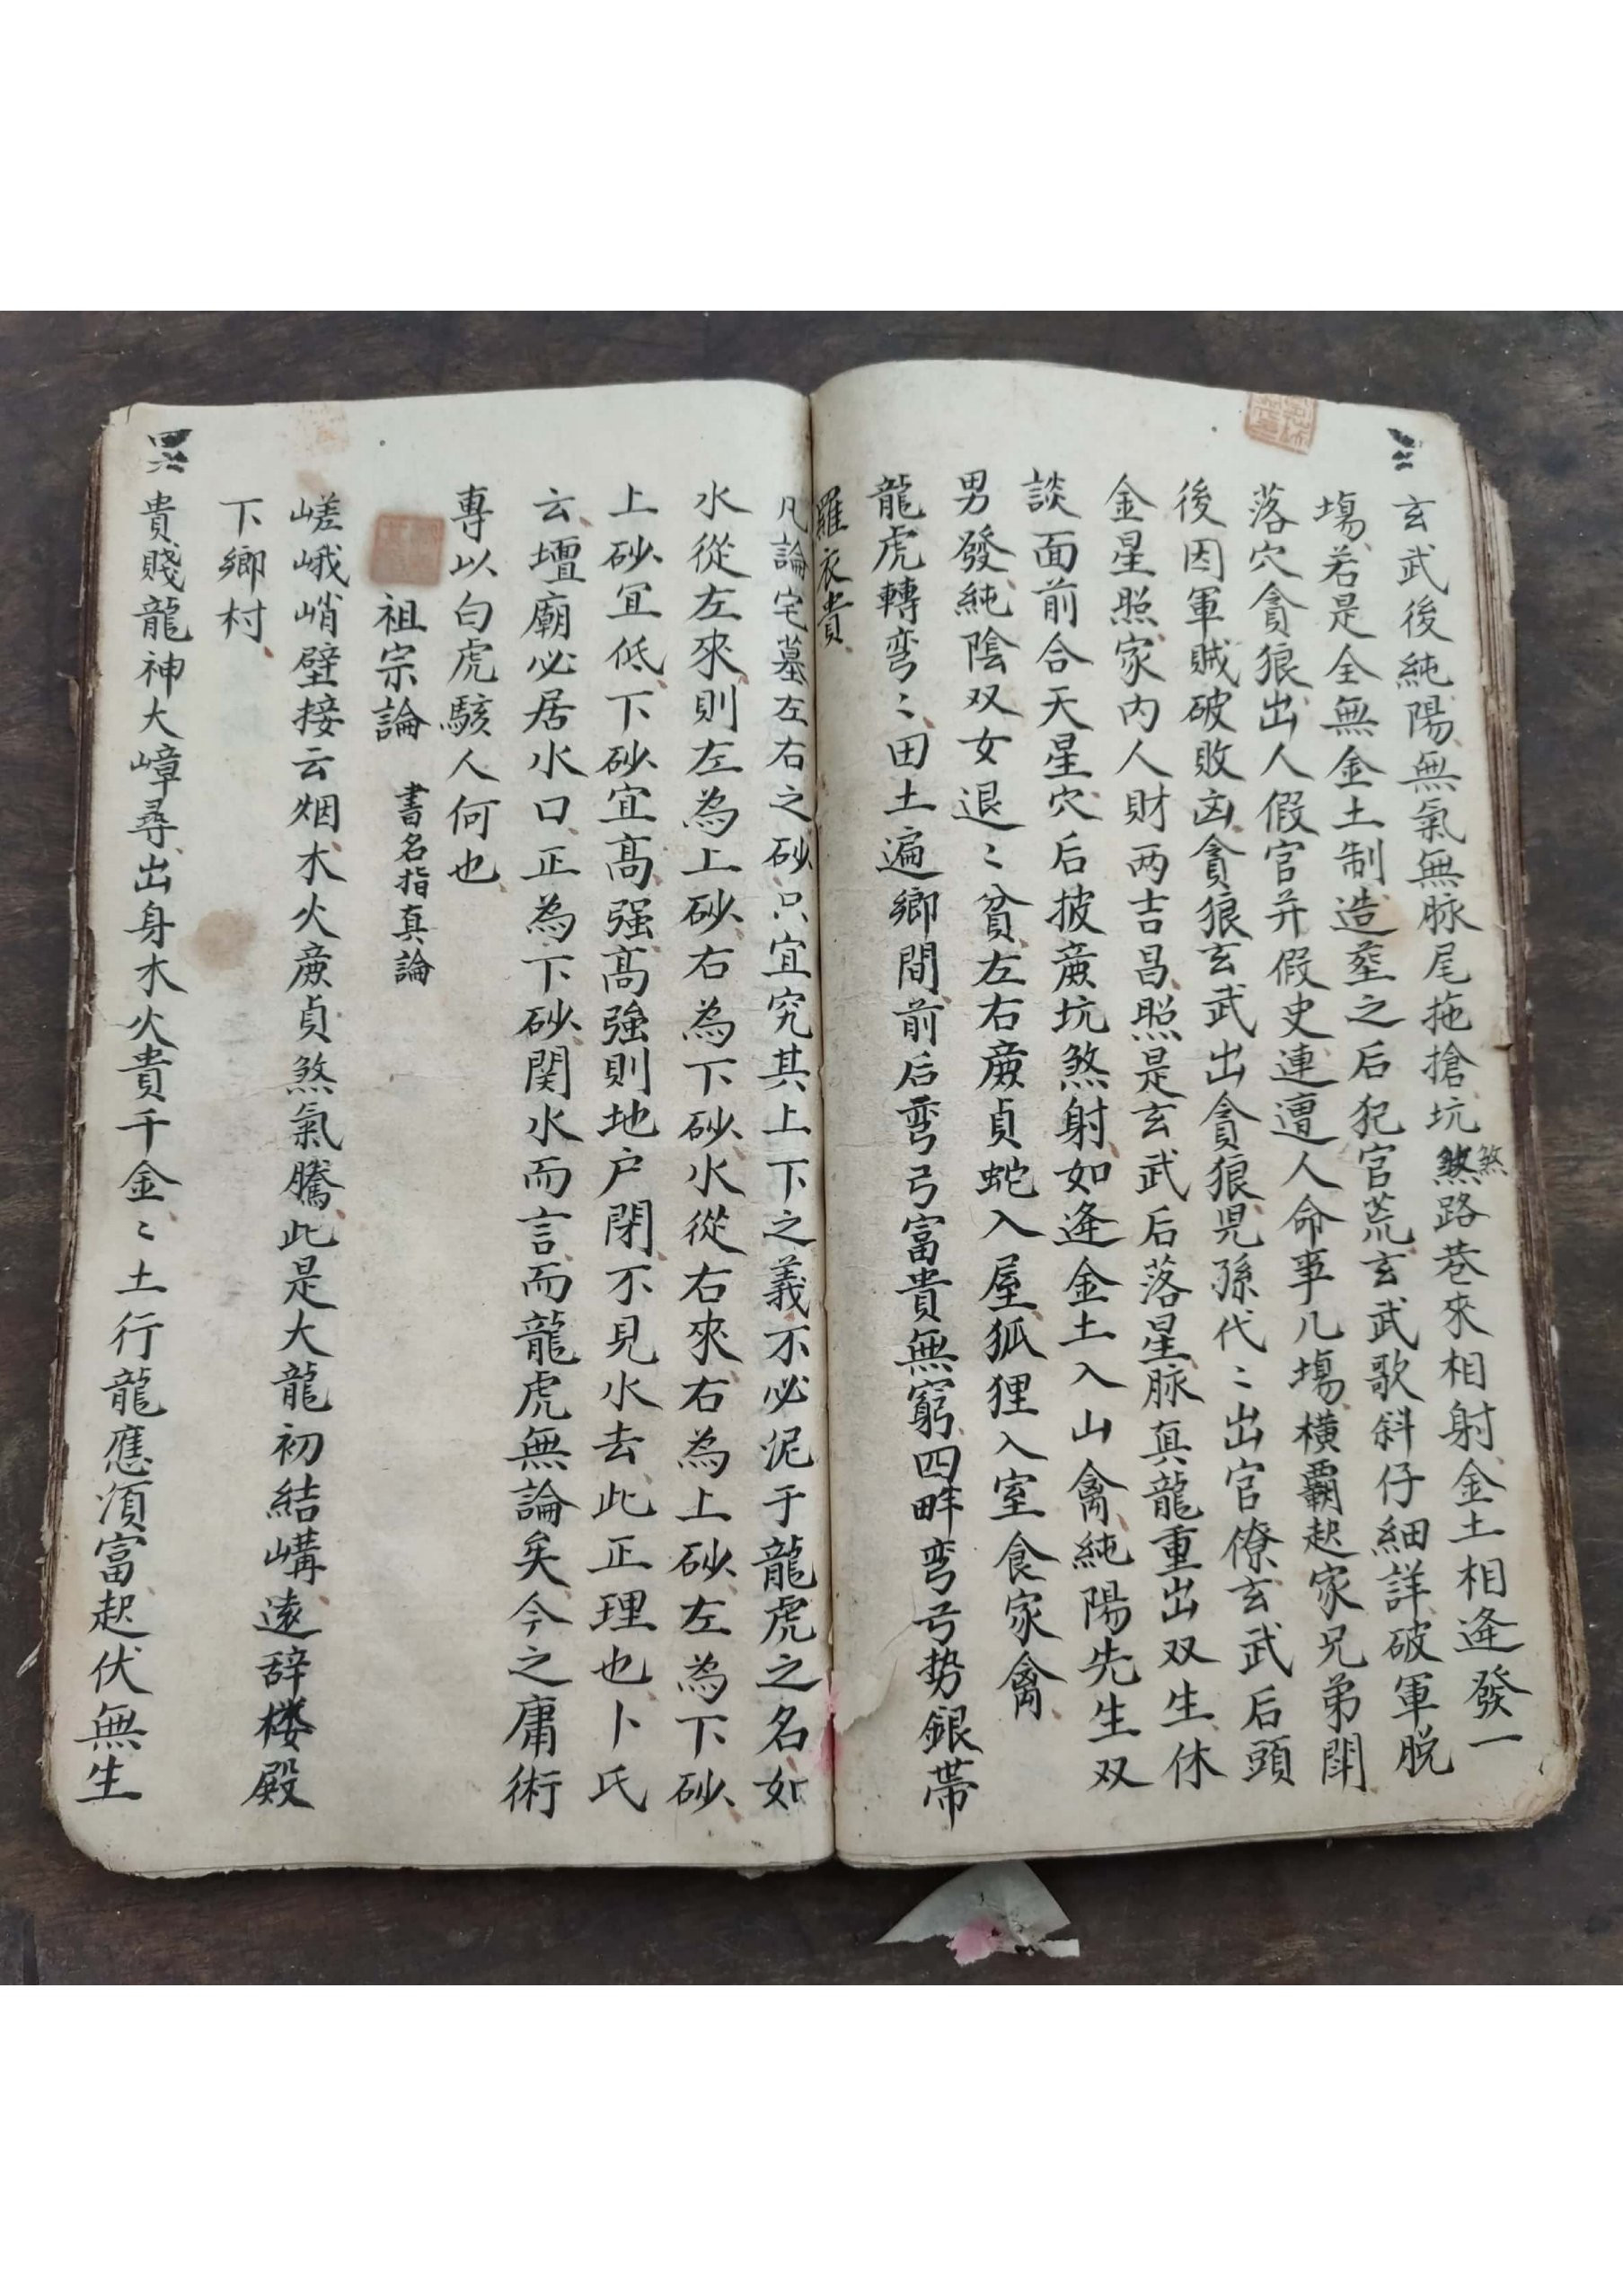 玄武後純陽無氣無脉尾拖搶坑煞路巷來相射金土相逢發一
煞
塲若是全無金土制造塟之后犯官荒玄武歌斜仔細詳破軍脱
落穴貪狼出人假官并假史連遭人命事几塲橫霸起家兄弟鬪
後因軍賊破敗凶貪狼玄武出貪狼児孫代〻出官僚玄武后頭
金星照家內人財两吉昌照是玄武后落星脉真龍重出双生休
談面前合天星穴后披廉坑煞射如逢金土入山禽純陽先生双
男發純陰双女退〻貧左右廉貞蛇入屋狐狸入室食家家禽
龍虎轉弯〻田土遍鄉間前后弯弓富貴無窮四畔弯弓势銀帯
羅衣貴
凡論宅墓左右之砂只宜究其上下之義不必泥于龍虎之名如
水從左來則左為上砂右為下砂水從右來右為上砂左為下砂
上砂宜低下砂宜高强高強則地户閉不見水去此正理也卜氏
云壇廟必居水口正為下砂関水而言而龍虎無論矣今之庸術
專以白虎駭人何也
祖宗論 書名指真論
嵯峨峭壁接云烟木火廉貞煞氣騰此是大龍初結構遠辞楼殿
下鄉村
貴賤龍神大嶂尋出身木火貴千金〻土行龍應須富起伏無生